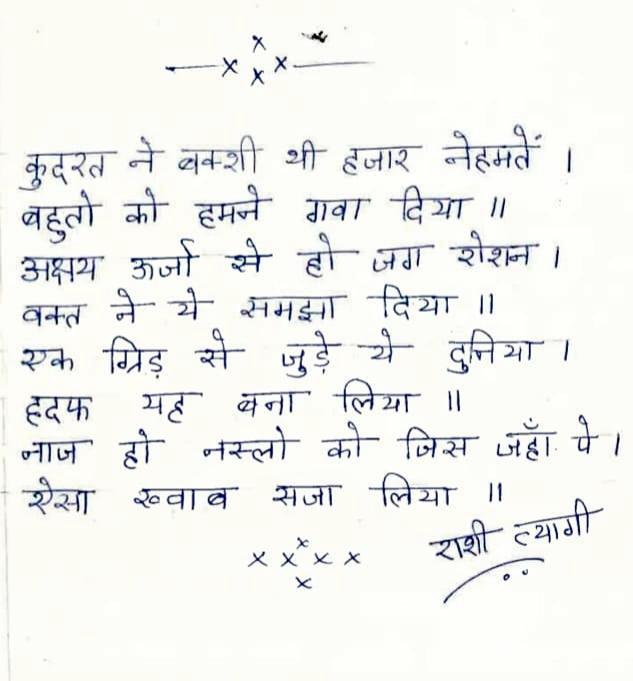 कुदरत ने बक्शी थी हजार नेहमतें ।
बहुतो को हमने गवा दिया ॥
अक्षय ऊर्जा से हो जग रोशन ।
वक्त ने ये समझा दिया ॥
एक ग्रिड़ से जुड़े ये दुनिया ।
हदफ यह बना लिया ॥
नाज हो नस्लो को जिस जहाँ पे ।
ऐसा ख्वाब सजा लिया ॥
राशी त्यागी